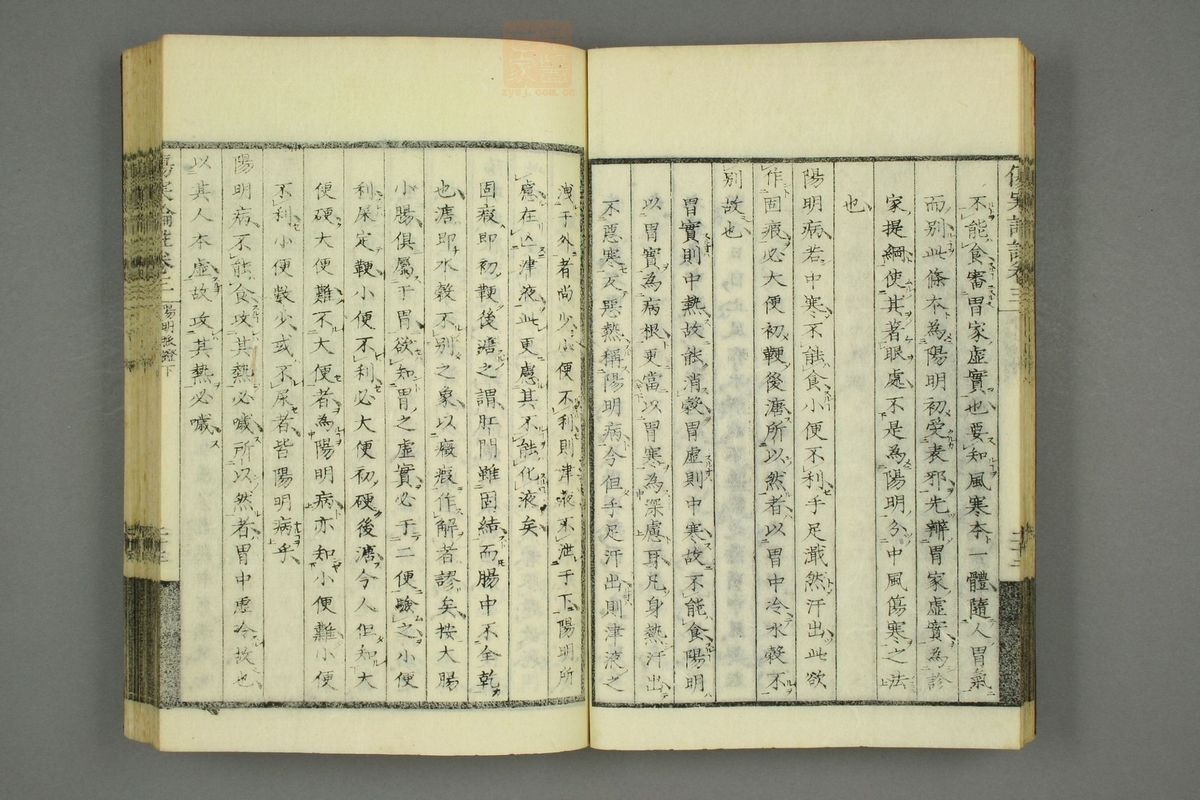 不能食審胃家虛實也要知風寒本一體隨人胃氣
而別此條本為陽明初受表邪先辨胃家虛實為診
家提綱使其著眼處不是為陽明分中風傷寒之法
也
陽明病若中寒不能食小便不利手足濈然汗出此欲
作固瘕必大便初鞕後溏所以然者以胃中冷水穀不
別故也
胃實則中熱故能消穀胃虛則中寒故不能食陽明
以胃實為病根更當以胃寒為深慮耳凡身熱汗出
不惡寒反惡熱稱陽明病今但手足汗出則津液之
洩于外者尚少小便不利則津液不泄于下陽明所
慮在亡津液此更慮其不能化液矣
固瘕即初鞕後溏之謂肝開雖固結而腸中不全乾
也溏即水穀不別之象以癥瘕作解者謬矣按大腸
小腸俱屬于胃欲知胃之虛實必于二便驗之小便
利屎定鞕小便不利必大便初硬後溏今人但知大
便硬大便難不大便者為陽明病亦知小便難小便
不利小便數少或不尿者皆陽明病乎
陽明病不能食攻其熱必噦所以然者胃中虛冷故也
以其人本虛故攻其熱必噦
傷寒論註卷三 陽明脈證下
zysj.com.cn